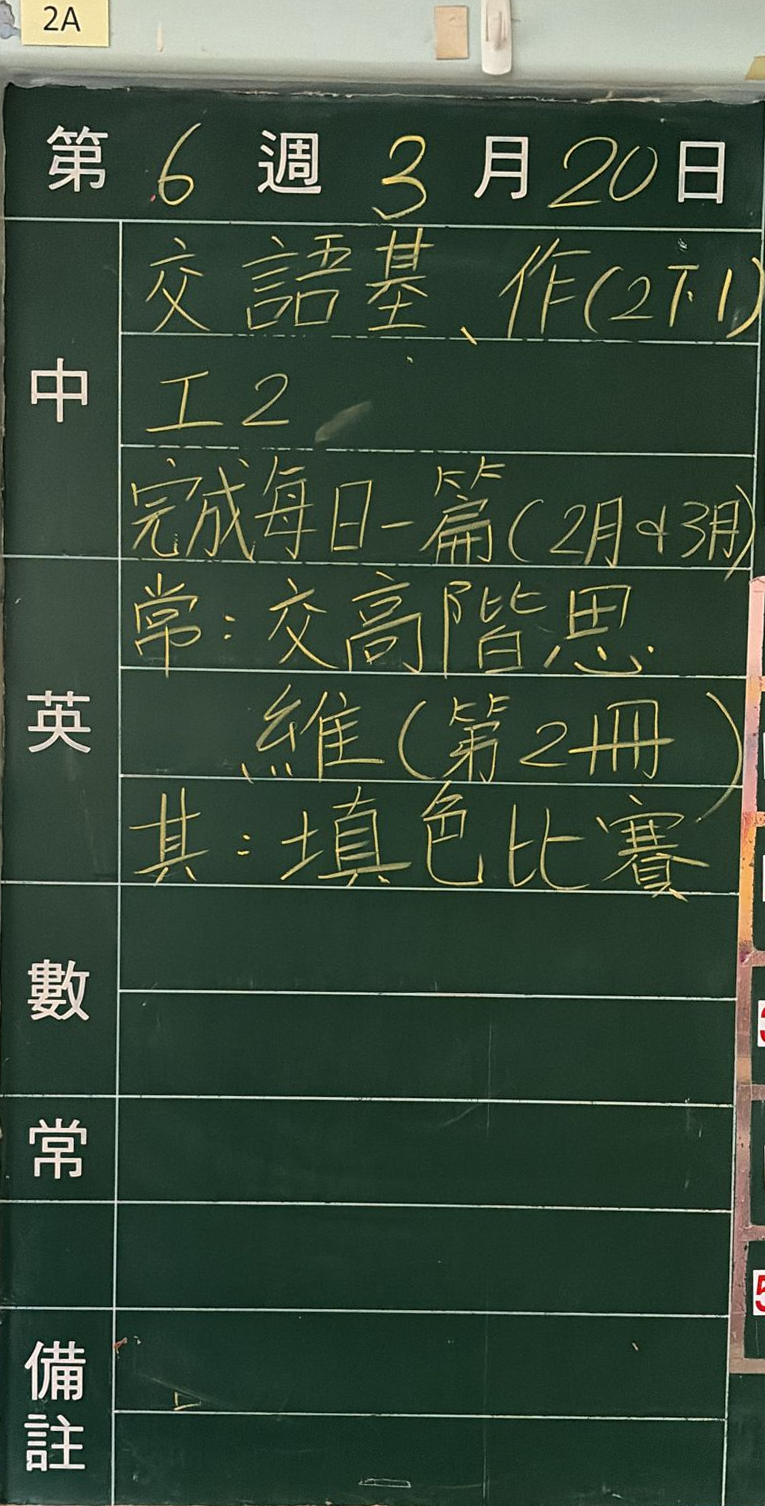 2A
第 6 週 3 月 20 日
中
交 語基、作(2下1)
工2
完成每日一篇(2月&3月)
英
常:交高階思
維(第2冊)
其:填色比賽
數
常
備
註